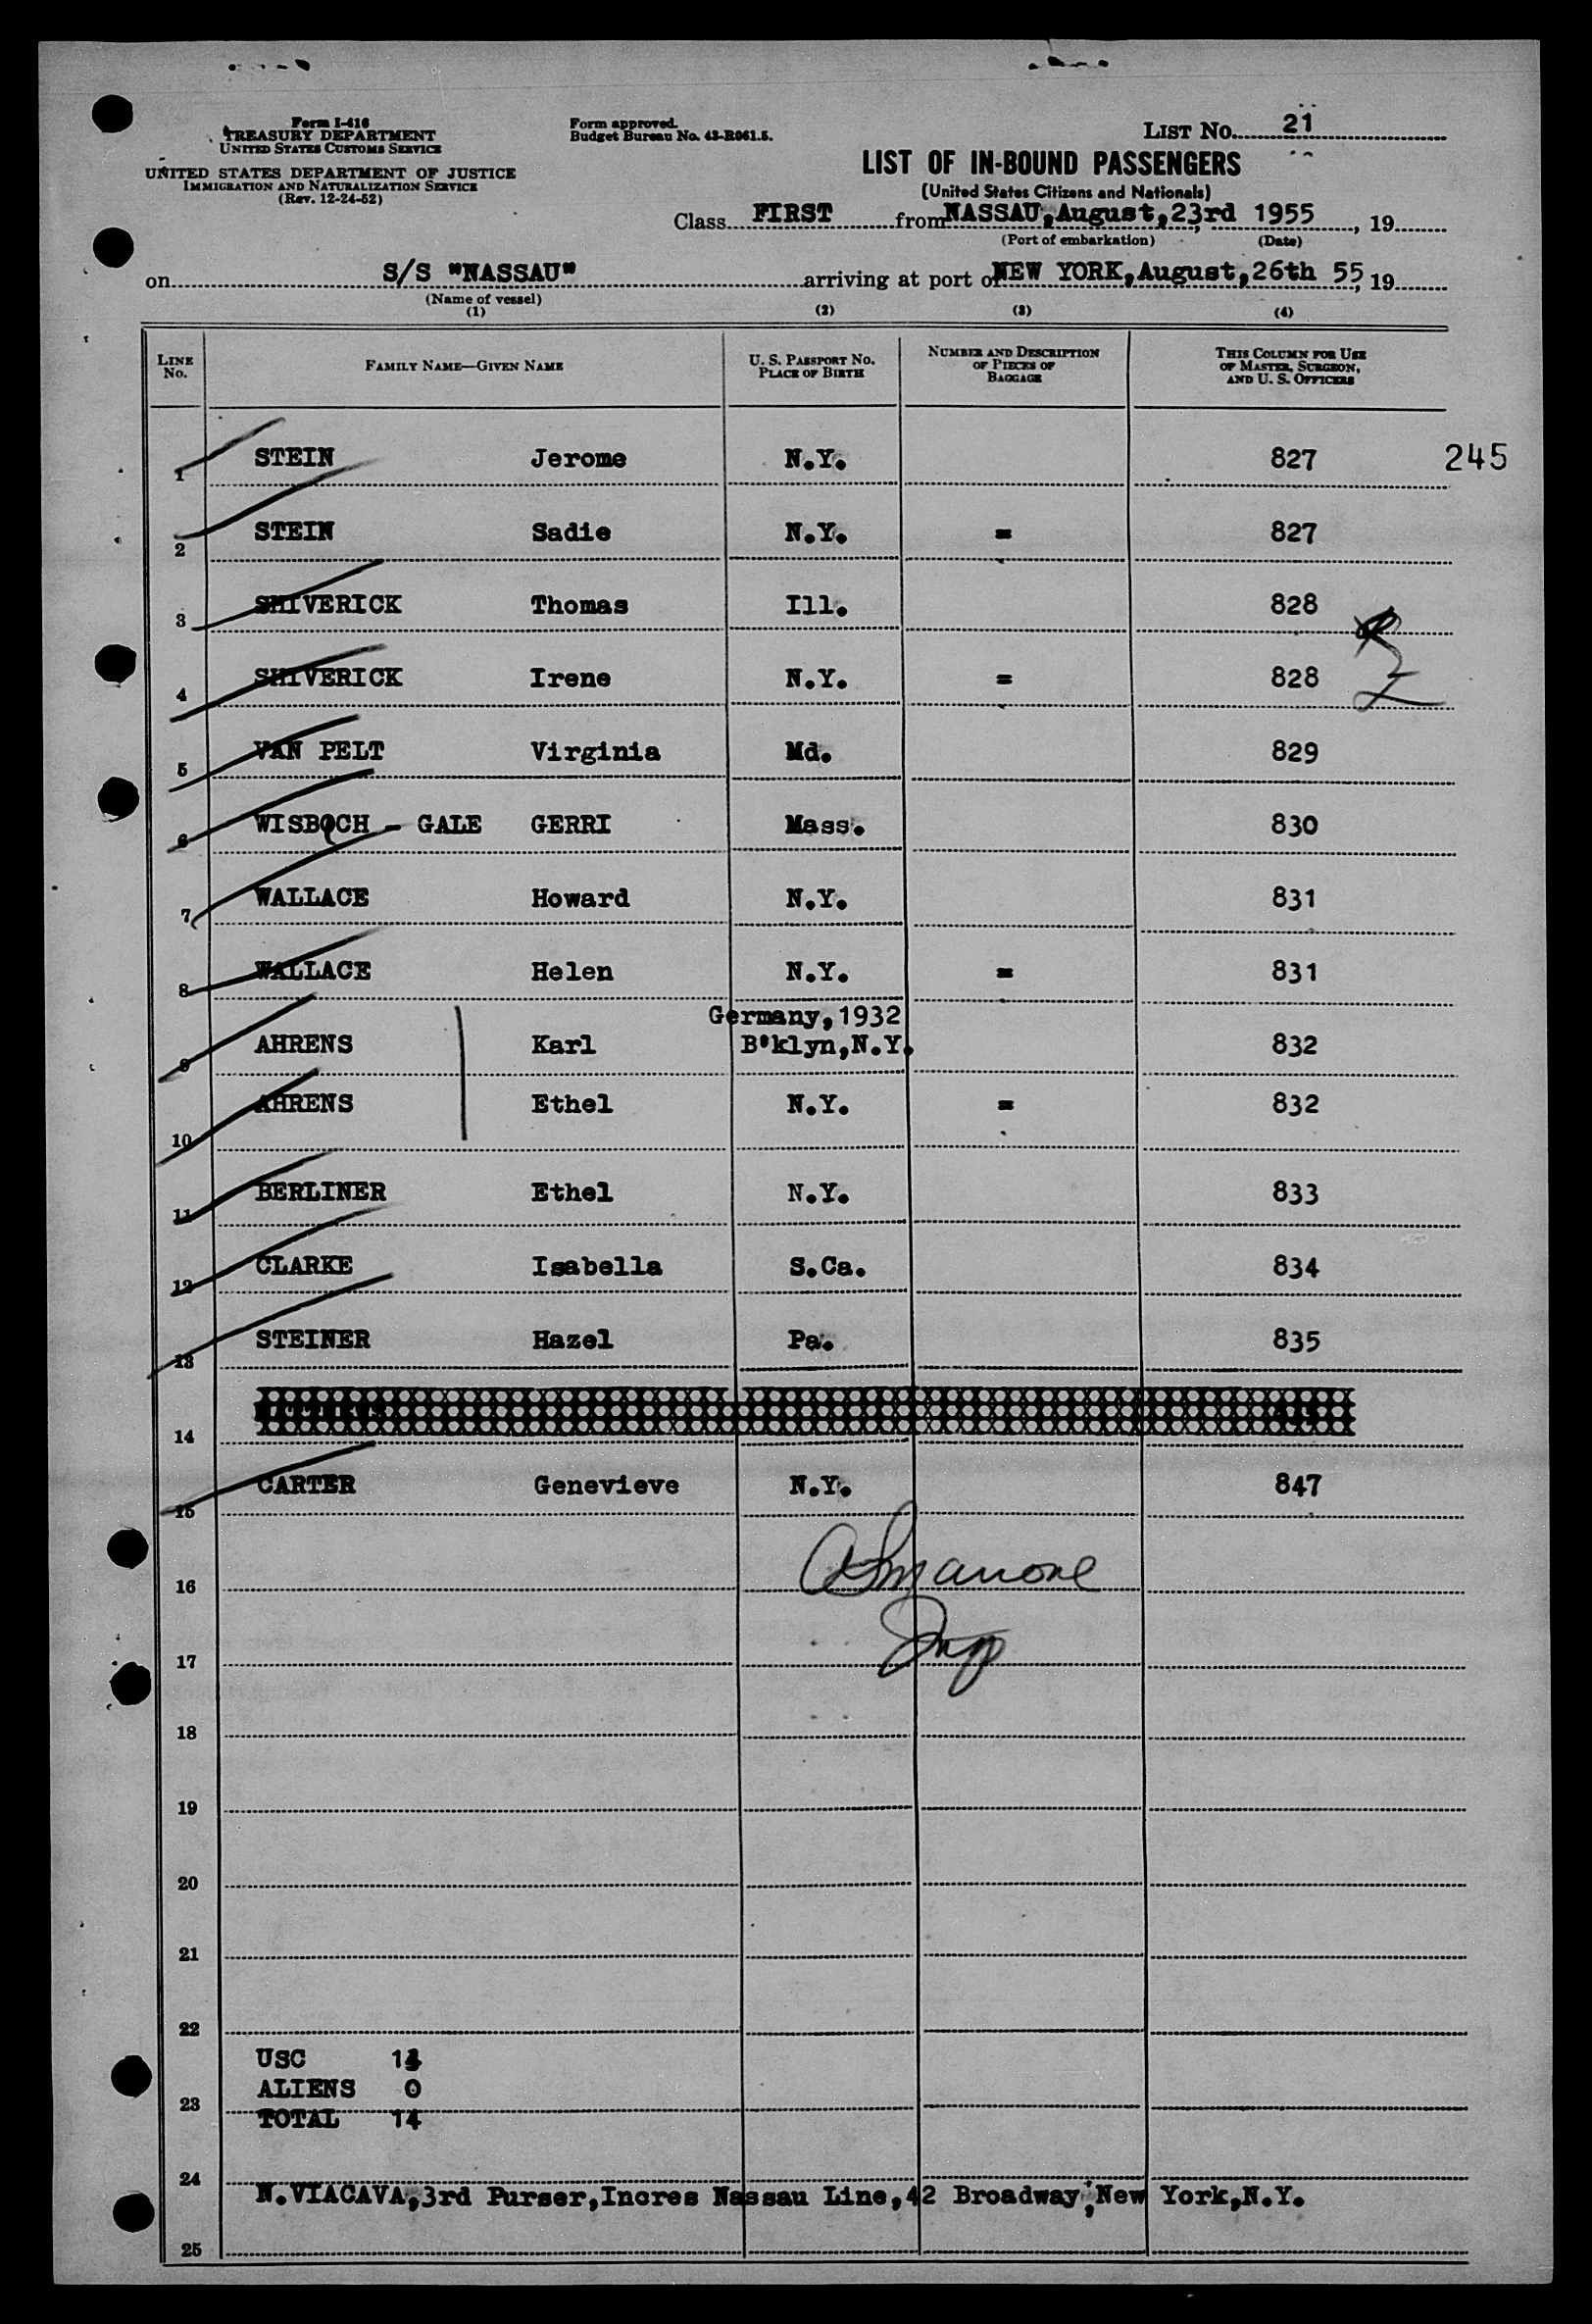 Form I-416
TREASURY DEPARTMENT
UNITED STATES CUSTOMS SERVICE
UNITED STATES DEPARTMENT OF JUSTICE
IMMIGRATION AND NATURALIZATION SERVICE
(Rev. 12-24-52)
Form approved.
Budget Bureau No. 43-R061.5.
LIST NO. 21
LIST OF IN-BOUND PASSENGERS
(United States Citizens and Nationals)
Class FIRST from NASSAU, August, 23rd 1955, 19
(Port of embarkation) (Date)
on S/S "NASSAU" arriving at port of NEW YORK, August, 26th 55, 19
(Name of vessel)
(1) (2) (3) (4)
LINE No. FAMILY NAME—GIVEN NAME U. S. PASSPORT NO. PLACE OF BIRTH NUMBER AND DESCRIPTION OF PIECES OF BAGGAGE THIS COLUMN FOR USE OF MASTER, SURGEON, AND U. S. OFFICERS
1 STEIN Jerome N.Y. 827 245
2 STEIN Sadie N.Y. = 827
3 SHIVERICK Thomas Ill. 828
4 SHIVERICK Irene N.Y. = 828
5 VAN PELT Virginia Md. 829
6 WISBOCH - GALE GERRI Mass. 830
7 WALLACE Howard N.Y. 831
8 WALLACE Helen N.Y. = 831
Germany, 1932
9 AHRENS Karl B'klyn, N.Y. 832
10 AHRENS Ethel N.Y. = 832
11 BERLINER Ethel N.Y. 833
12 CLARKE Isabella S.Ca. 834
13 STEINER Hazel Pa. 835
14
15 CARTER Genevieve N.Y. 847
16
17
18
19
20
21
22
USC 14
ALIENS 0
23
TOTAL 14
24
N.VIACAVA, 3rd Purser, Incres Nassau Line, 42 Broadway, New York, N.Y.
25